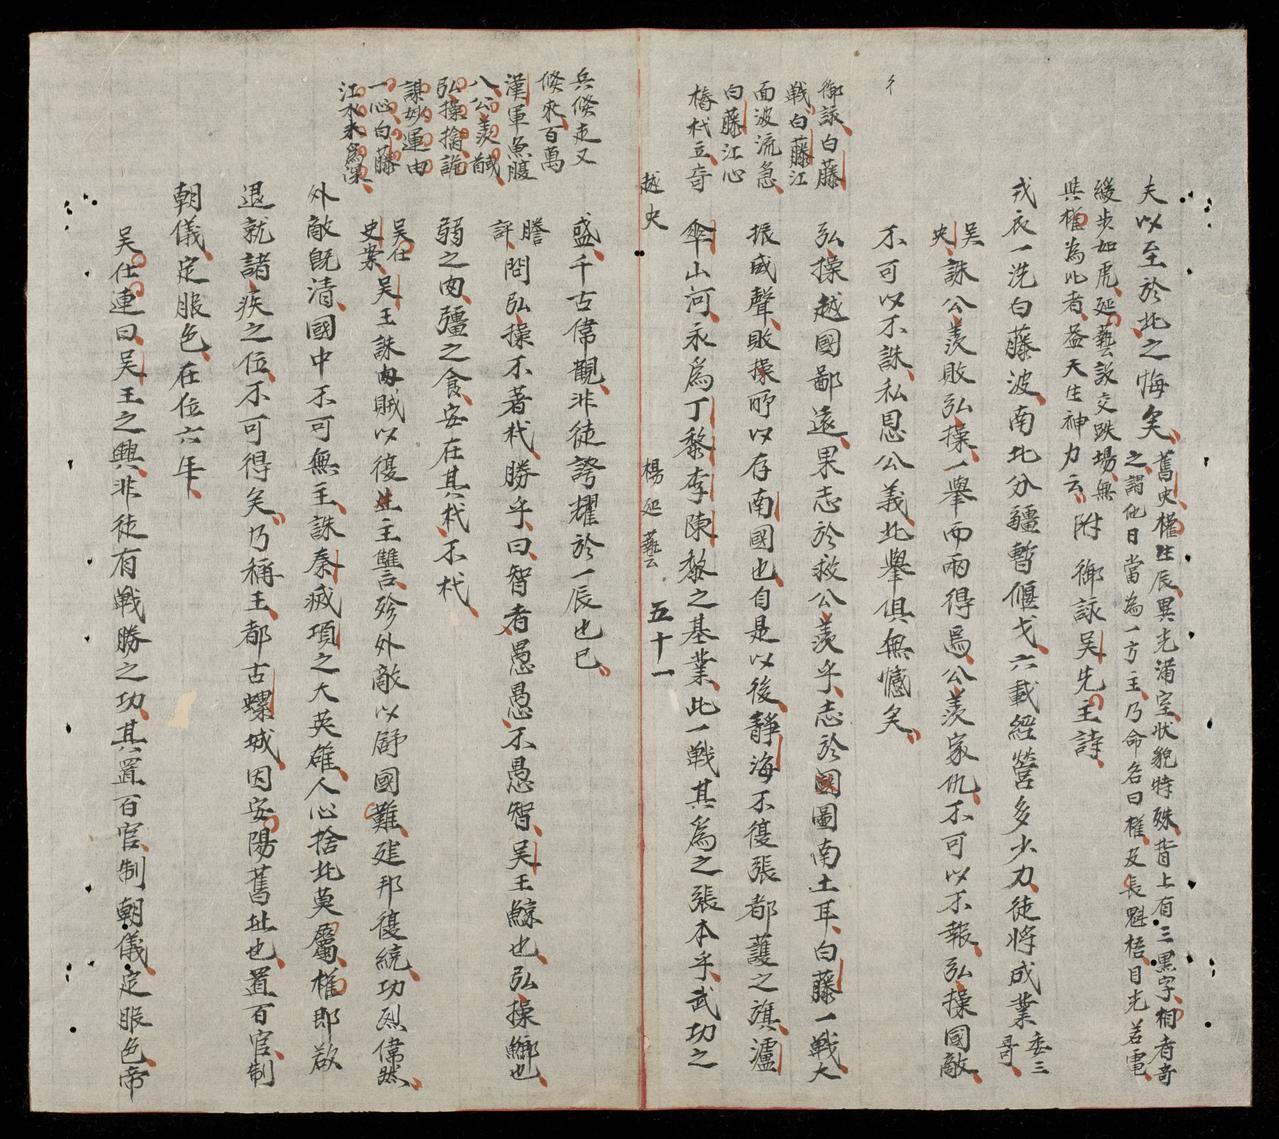 夫以至於北之悔矣舊史權生辰異光滿室狀貌特殊背上有三黑子相者奇
之謂他日當為一方主乃命名曰權及長魁梧目光若電
緩步如虎延藝設交跌場無
與權為比者益天生神力云附 御詠吳先主詩
戎衣一洗白藤波南北分疆暫偃戈六載經營多少力徒將成業委三
哥
吳
史誅公羨敗弘操一舉而兩得焉公羨家仇不可以不報弘操國敵
不可以不誅私恩公義此舉俱無憾矣
御詠白藤
戰白藤江
面波流急
白藤江心
樁杙立奇
弘操越國鄙遠果志於救公羨乎志於圖南土耳白藤一戰大
振威聲敗操所以存南國也自是以後靜海不復張都護之旗瀘
傘山河永爲丁黎李陳黎之基業此一戰其爲之張本乎武功之
越史 楊延藝 五十一
兵倐走又
倐來百萬
漢軍魚腹
八公羨馘
弘操擒詭
謀妙運由
一心白藤
江水未爲深
盛千古偉觀非徒誇耀於一辰也已
謄
評問弘操不著杙勝乎曰智者愚愚不愚智吳王鯨也弘操鰤也
弱之肉彊之食安在其杙不杙
吳仕
史案吳王誅內賊以復生主讐殄外敵以舒國難建邦復統功烈偉然
外敵既清國中不可無主誅秦㓕項之大英雄人心捨此莫屬權卽敢
退就諸侯之位不可得矣乃稱王都古螺城因安陽舊址也置百官制
朝儀定服色在位六年
吳仕連曰吳王之興非徒有戰勝之功其置百官制朝儀定服色帝